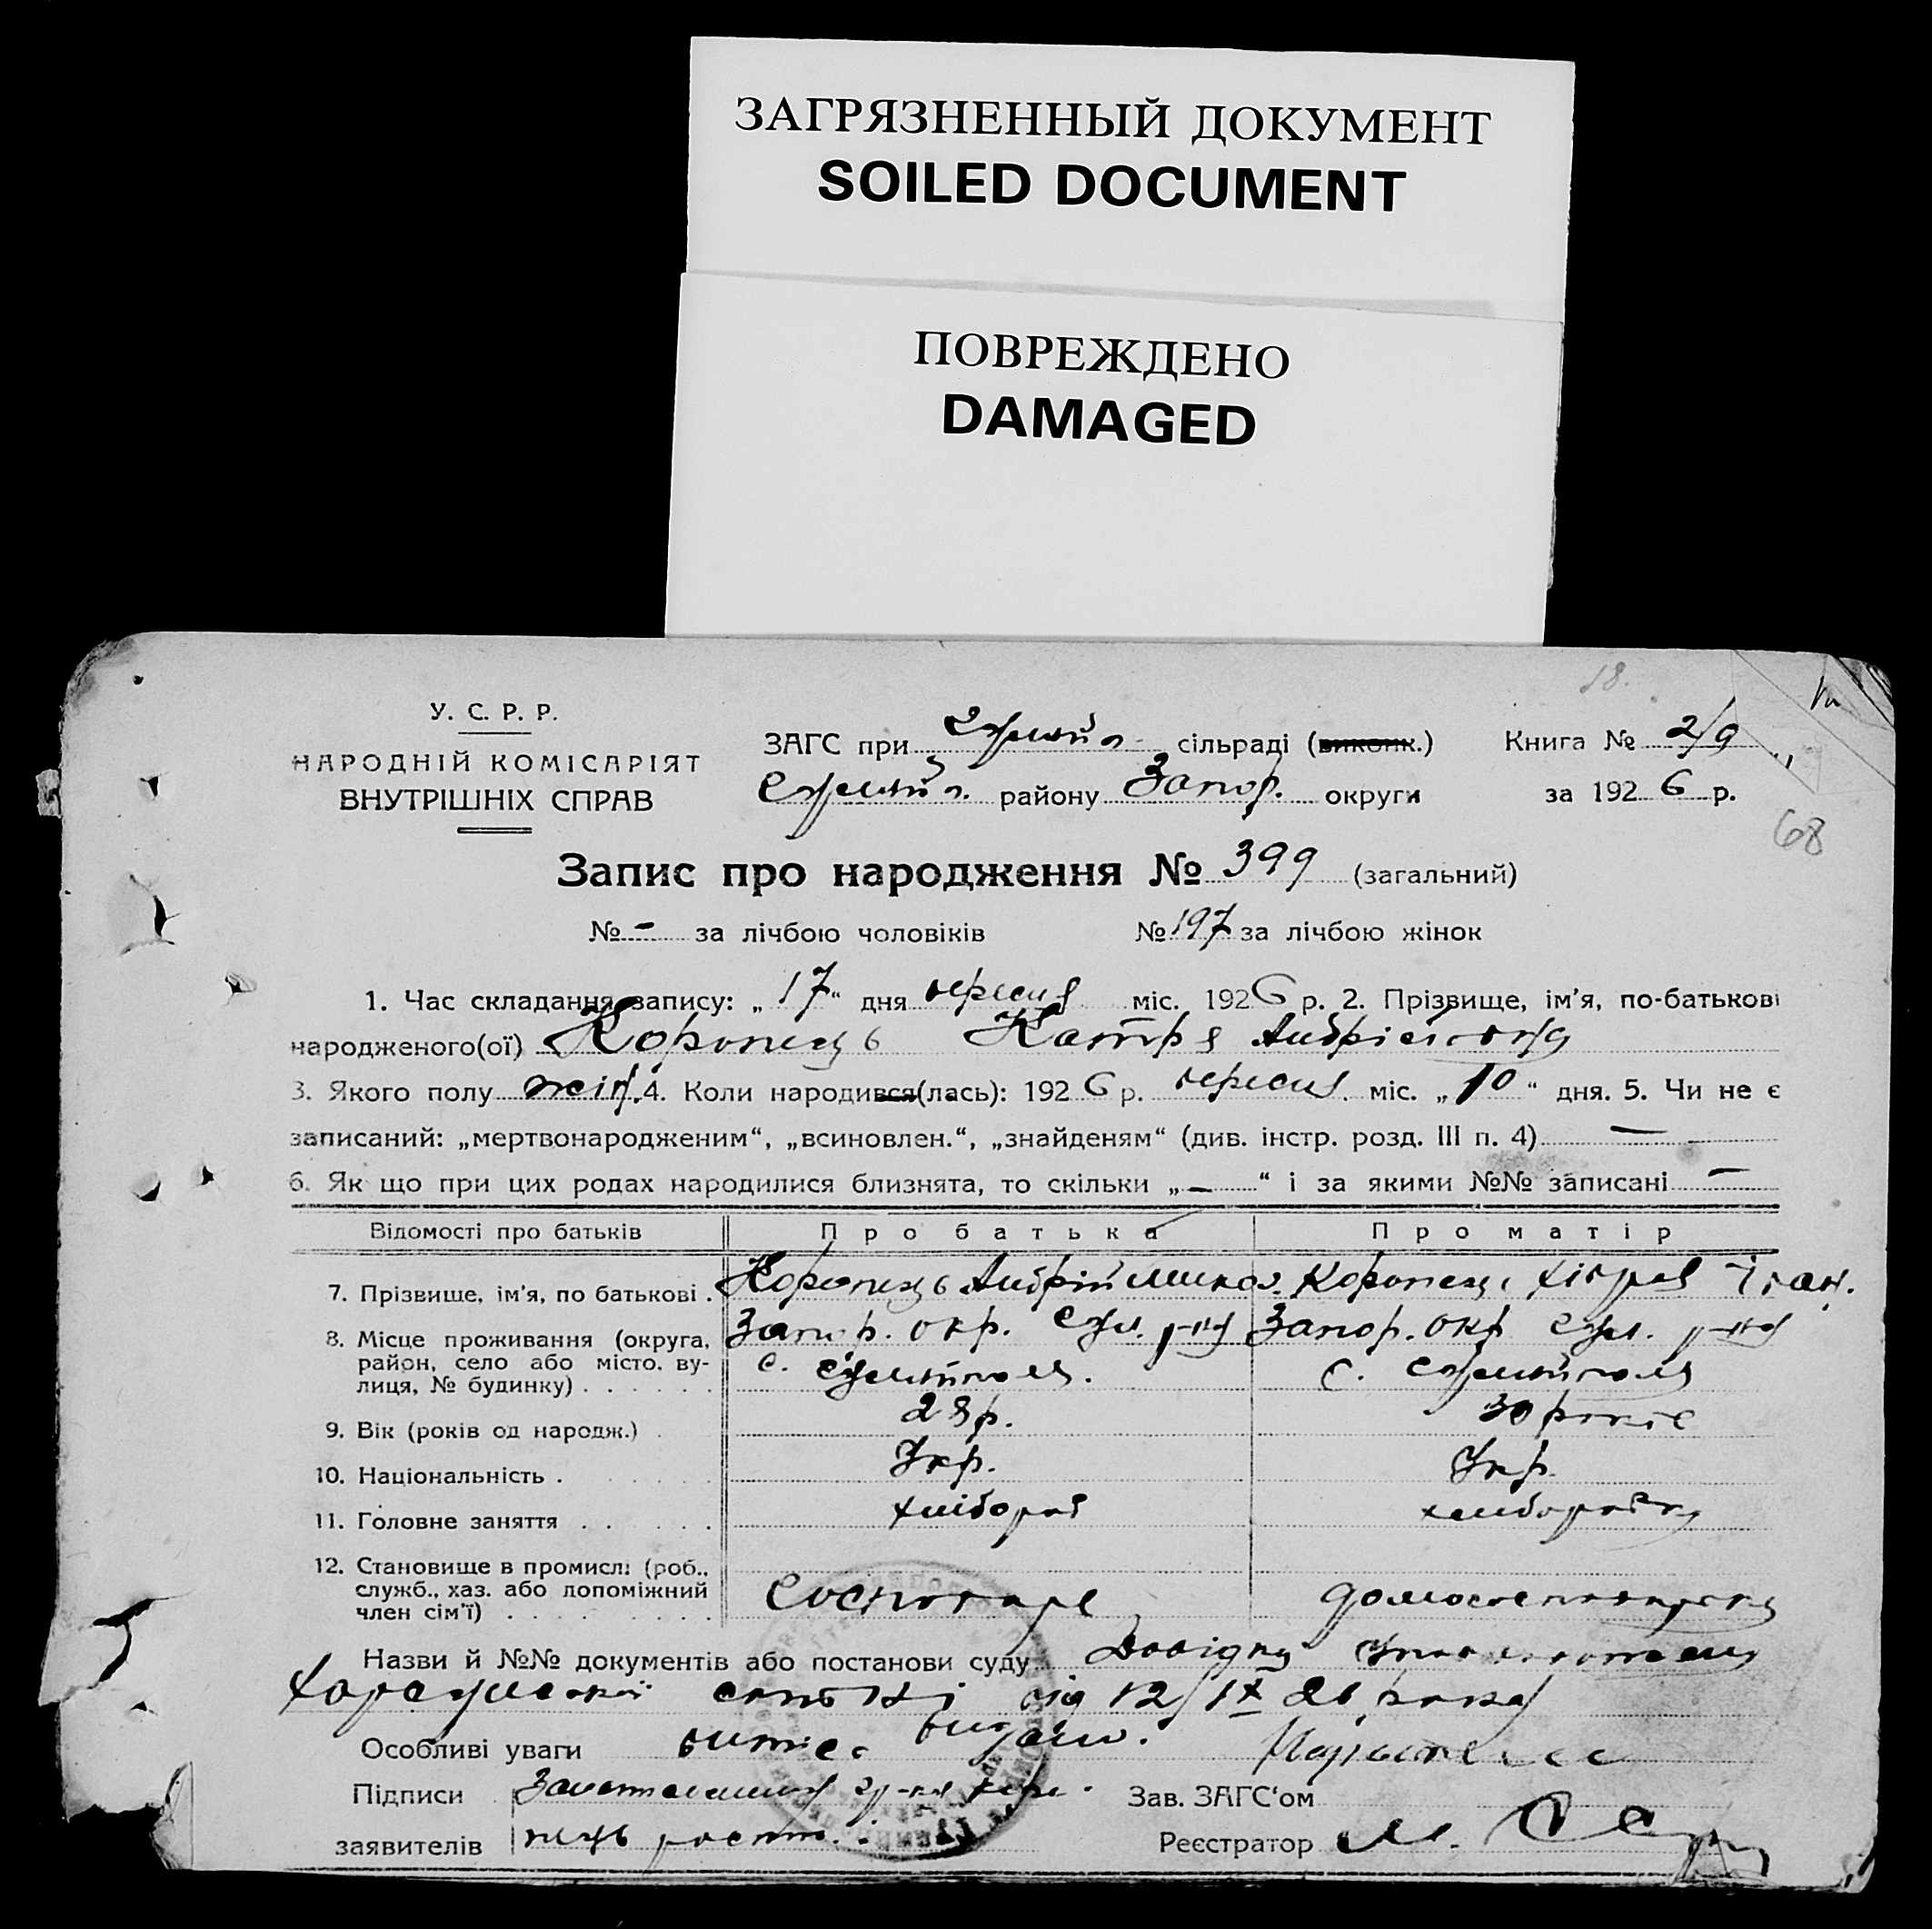 ЗАГРЯЗНЕННЫЙ ДОКУМЕНТ
SOILED DOCUMENT
ПОВРЕЖДЕНО
DAMAGED
18.
У. С. Р. Р.
НАРОДНІЙ КОМІСАРІЯТ
ВНУТРІШНІХ СПРАВ
ЗАГС при сільраді (виконк.) Книга № 2/9
району Запор. округи за 1926 р.
68
Запис про народження № 399 (загальний)
№ - за лічбою чоловіків № 197 за лічбою жінок
1. Час складання запису: „17“ дня вересня міс. 1926 р. 2. Прізвище, ім’я, по-батькові
народженого(ої) Коропець Катря Андріївна
3. Якого полу жін. 4. Коли народився(лась): 1926 р. вересня міс. „10“ дня. 5. Чи не є
записаний: „мертвонародженим“, „всиновлен.“, „знайденям“ (див. інстр. розд. III п. 4) —
6. Як що при цих родах народилися близнята, то скільки „—“ і за якими №№ записані —
Відомості про батьків Про батька Про матір
7. Прізвище, ім’я, по батькові . Коропець Андрій Коропець Іван.
8. Місце проживання (округа, район, село або місто, вулиця, № будинку) . . . . . . Запор. окр. р-ну с. Запор. окр р-ну с.
9. Вік (років од народж.) . 28 р. 30 років
10. Національність . Укр. Укр.
11. Головне заняття . . . . . хлібороб хліборобка
12. Становище в промисл: (роб., служб., хаз. або допоміжний член сім’ї) . . . . . . . . Господарь домогосподарка
Назви й №№ документів або постанови суду Довідка
від 12/IX 26 року
Особливі уваги витяг видано.
Підписи Зав. ЗАГС‘ом
заявителів Реєстратор